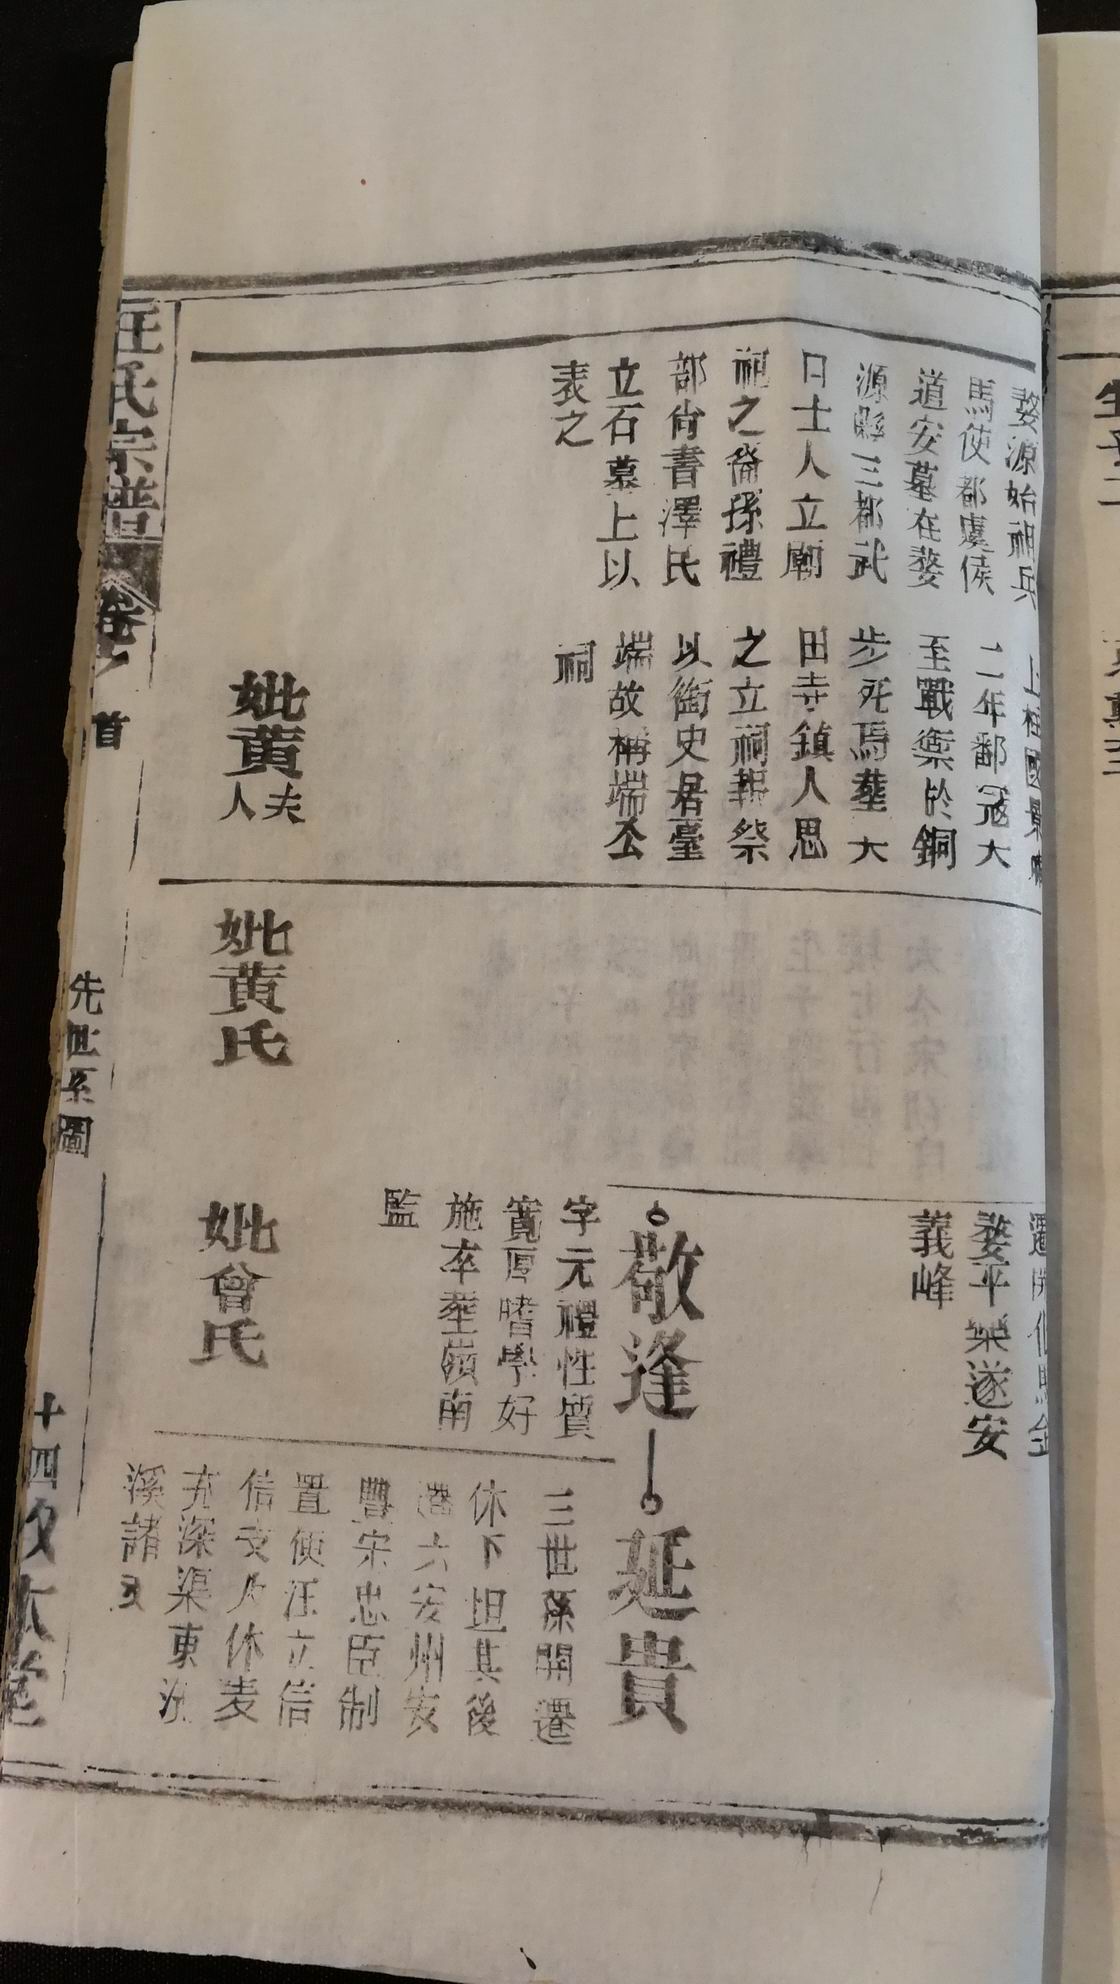 婺源始祖兵
馬使都虞侯
道安墓在婺
源縣三都武
口士人立廟
祀之裔孫禮
部尚書澤民
立石墓上以
表之
上柱國
二年鄱冦大
至戰禦於銅
步死焉塟大
田寺鎮人思
之立祠報祭
以衘史居臺
端故稱端公
祠
妣黄夫人
妣黄氏
婺平樂遂安
義峰
敬逢
字元禮性質
寛厚嗜學好
施卒塟嶺南
監
妣曾氏
延貴
三世孫開遷
休下坦其後
潛六安州安
豐宋忠臣制
置使汪立信
信支人休麦
充深渠東
溪諸支
汪氏宗譜
卷首
先世系圖
十四
敦本堂